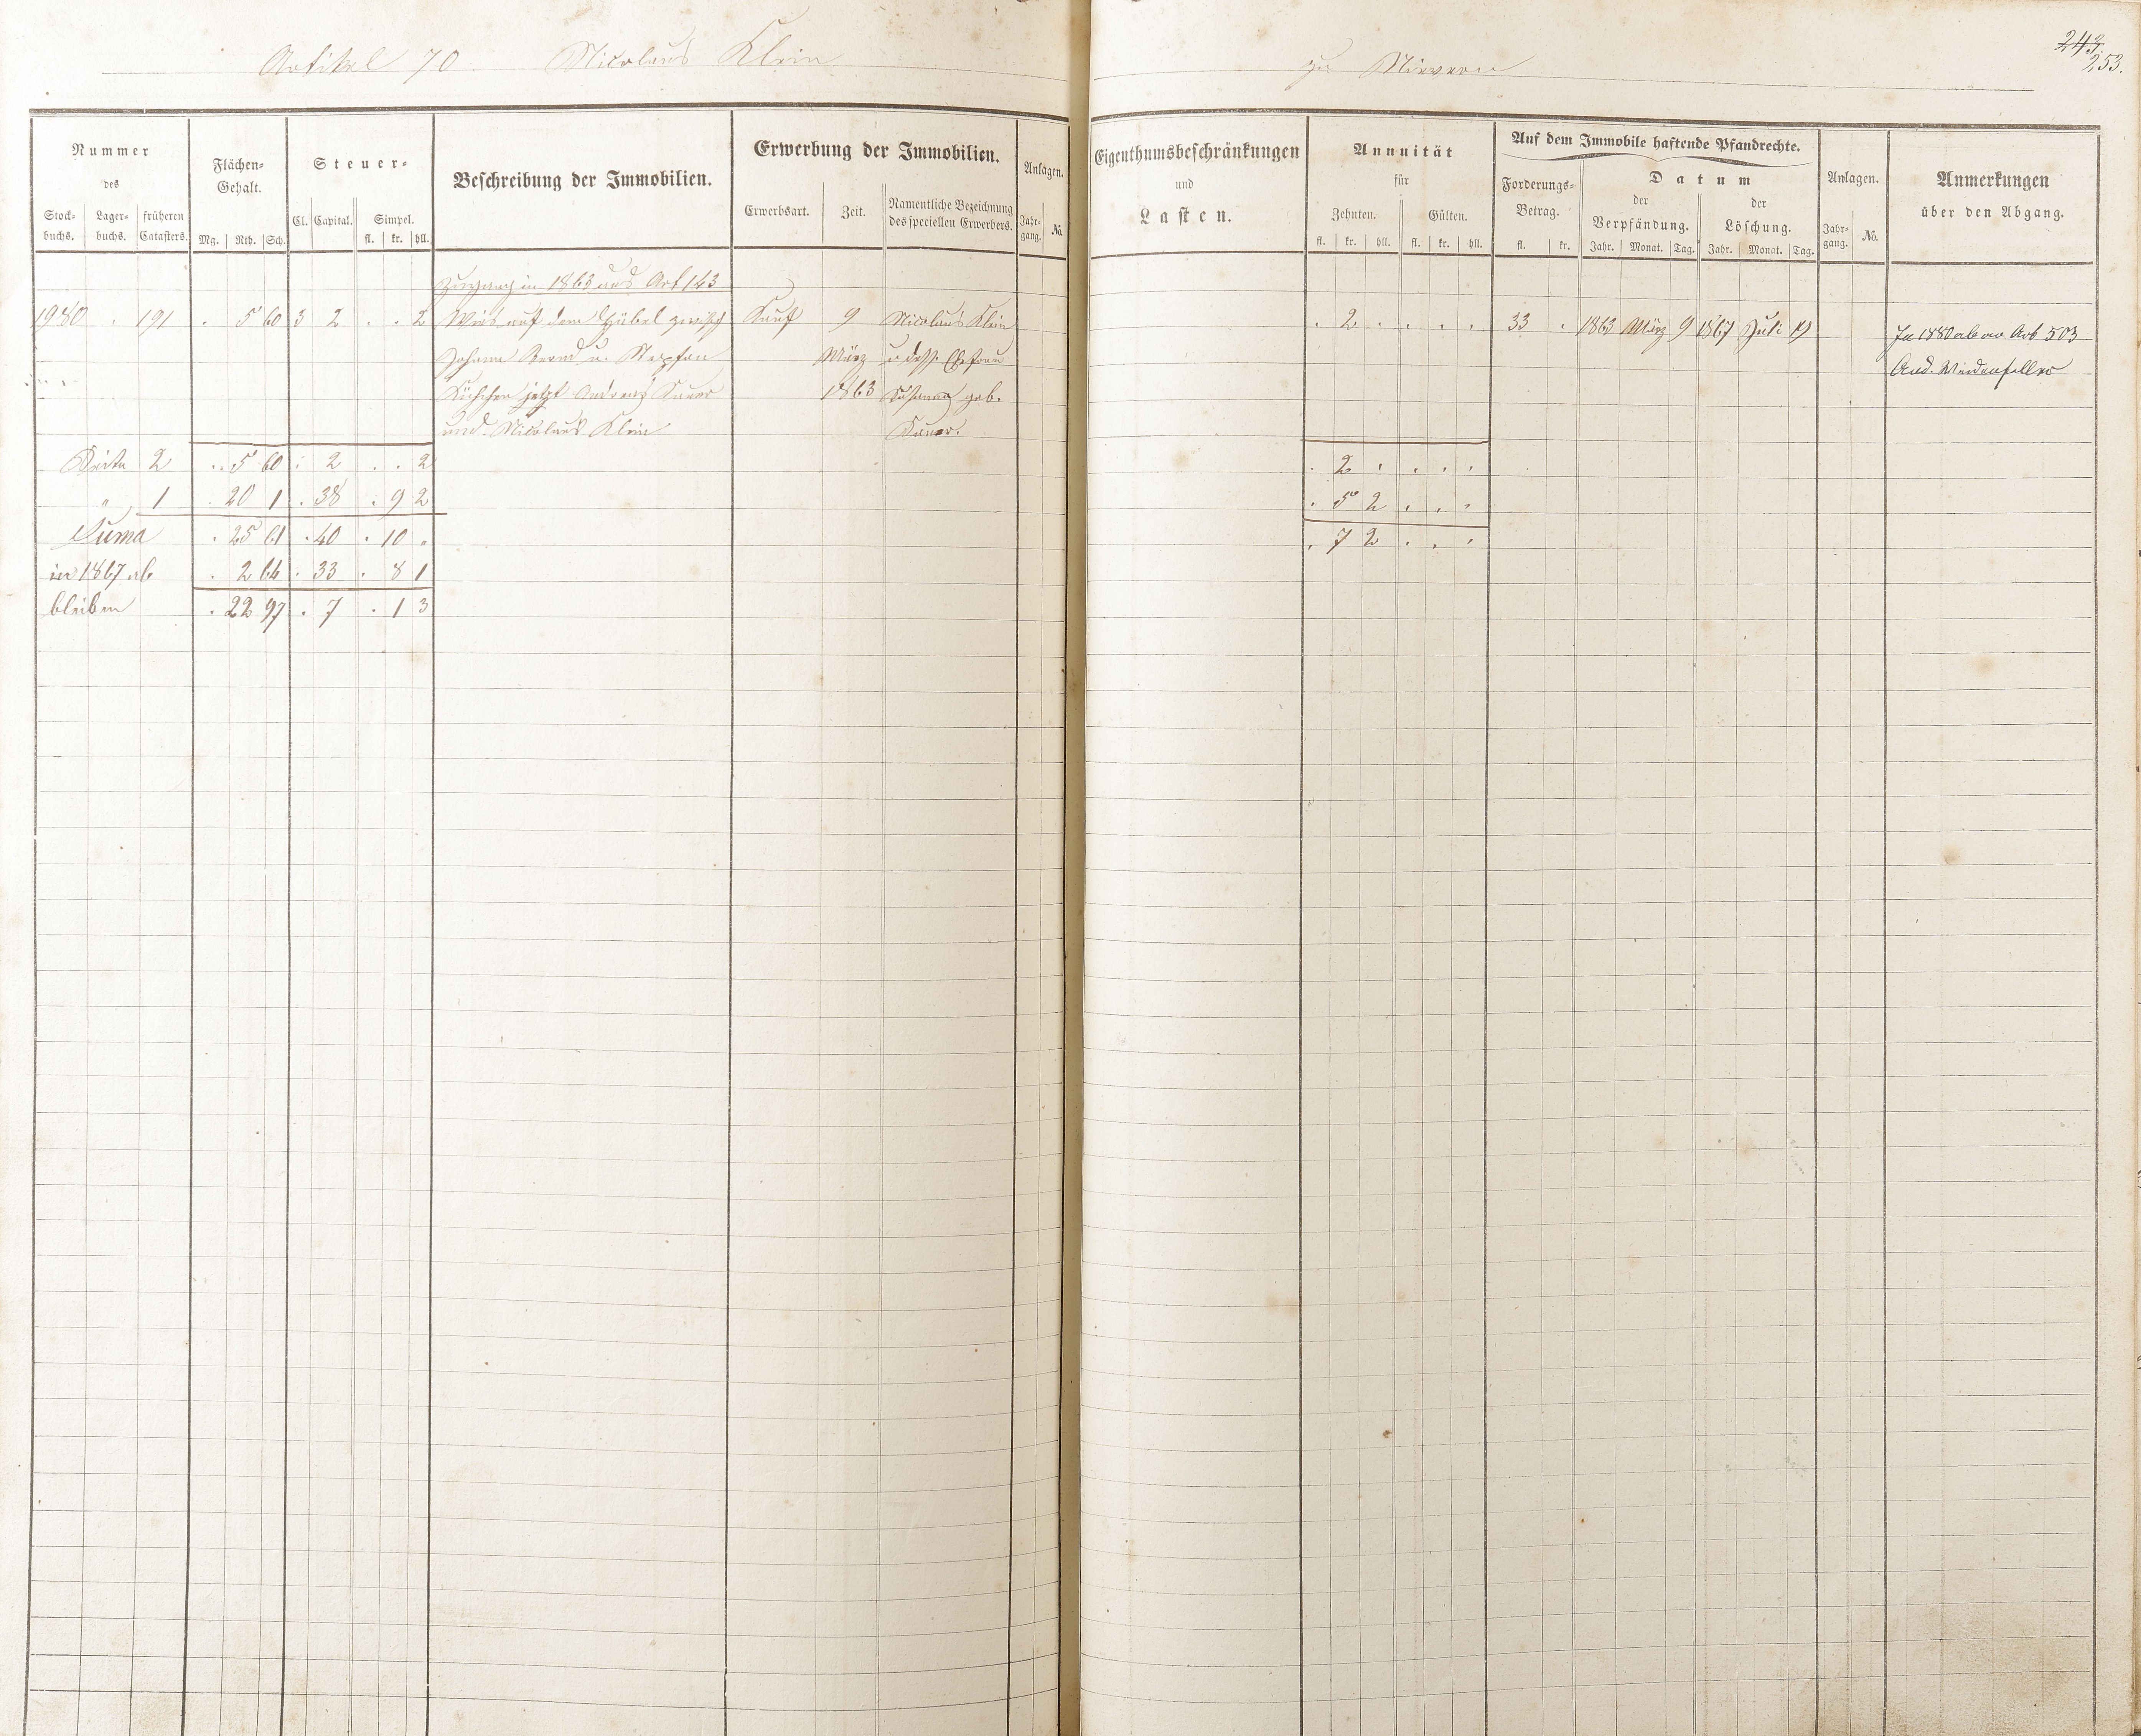 Artikel 70 Nicolaus Klein zu Nievern
243.
253.
Nummer des
Stockbuchs. Lagerbuchs. früheren Catasters.
Flächen-Gehalt.
Mg. Rth. Sch.
Steuer-
Cl. Capital. Simpel.
fl. kr. hll.
Beschreibung der Immobilien.
Erwerbung der Immobilien.
Erwerbsart. Zeit. Namentliche Bezeichnung des speciellen Erwerbers.
Anlagen.
Jahrgang. No.
Eigenthumsbeschränkungen
und
Lasten.
Annuität
für
Zehnten. Gülten.
fl. kr. hll. fl. kr. hll.
Auf dem Immobile haftende Pfandrechte.
Forderungs-Betrag.
fl. kr.
Datum
der Verpfändung. der Löschung.
Jahr. Monat. Tag. Jahr. Monat. Tag.
Anlagen.
Jahrgang. No.
Anmerkungen
über den Abgang.
Zugang in 1863 aus Art 143
1980 . 191 . 5 60 3 2 . . 2 Wies auf dem Hübel zwisch Kauf 9 Nicolaus Klein . 2 . . . . 33 . 1863 März 9 1867 Juli 19 In 1880 ab an Art 503
Johann und u. Stephan März u. dess. Ehefrau And. Weidenfeller
jetzt Andreas Kauer 1863 Susanna geb.
und Nicolaus Klein Kauer.
Seite 2 . 5 60 . 2 . . 2 . 2 . . . .
" 1 . 20 1 . 38 . 9 2 . 5 2 . . .
Suma . 25 61 . 40 . 10 . . 7 2 . . .
in 1867 ab . 2 64 . 33 . 8 1
bleiben . 22 97 . 7 . 1 3